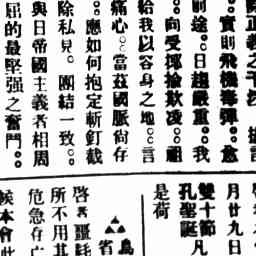 正義之干
。實則飛機毒彈。愈
前途。日趨嚴重。我
。向受揶揄欺凌。祖
給我以容身之地。言
痛心。當茲國脈尚存
。應如何抱定斬釘截
除私見。團結一致。
與日帝國主義者相周
屈的最堅强之奮鬥。
月廿九日
雙十節凡
孔聖誕
是荷
島
省
啓者噩耗
所不用其
危急存亡
候本會此